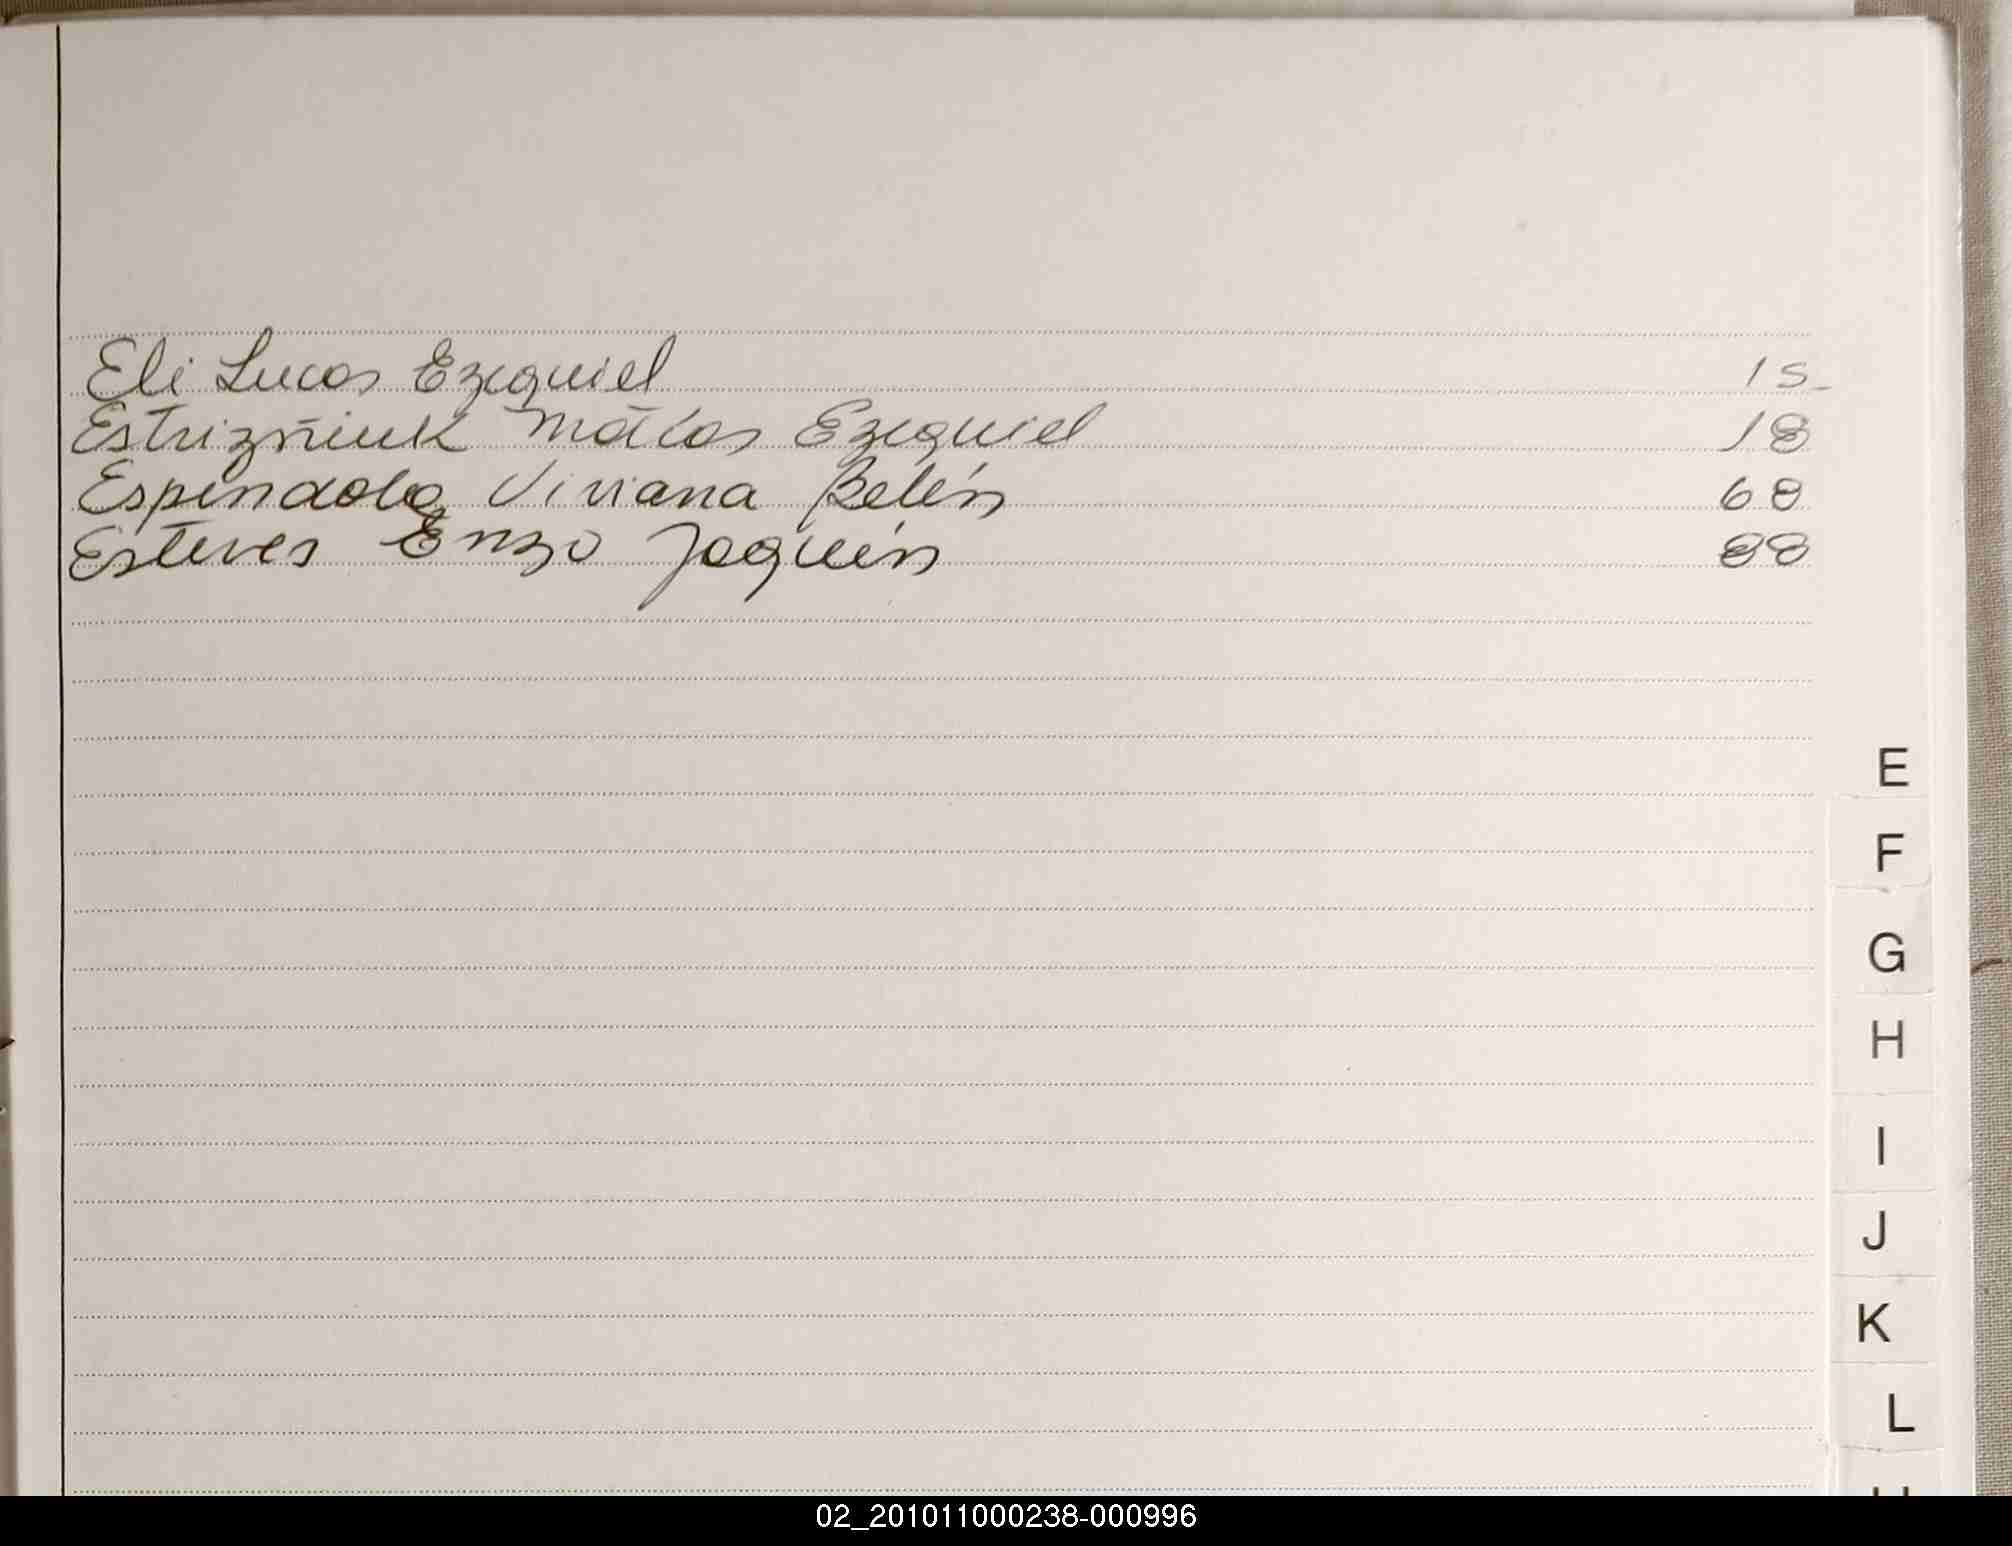 Eli Lucas Ezequiel 15
Matías Ezequiel 18
Espindola Viviana Belén 68
Esteves Enzo Joaquín 88
E
F
G
H
I
J
K
L
02_201011000238-000996